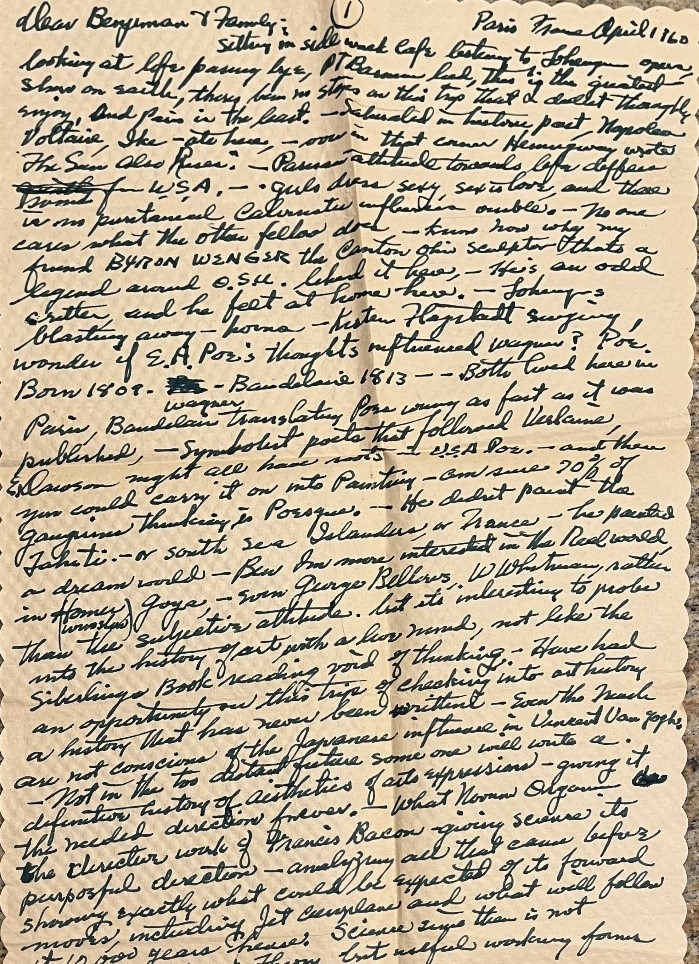 1
Dear Benjeman & Family:
Paris France April 1960
sitting in side walk cafe listing to Lohengrin opera,
looking at life passing bye, PT Barnum lied, this is the greatest
show on earth, there been no stops on this trip that I didnt thoroughly
enjoy, and Paris is the last. — Saturated in historic past Napoleon
Voltaire, Ike ate here, — over in that corner Hemingway wrote
The Sun Also Rises. — Parisian attitude towards life differs
from U.S.A. — girls dress sexy, sex is love, and there
is no puritanical Calvinistic influences visible. — No one
cares what the other fellow does, — know now why my
friend BYRON WENGER the Canton Ohio sculptor thats a
legend around O.S.U. liked it here, — He's an odd
critter, and he felt at home here. — Lohengrins
blasting away — horns — Kirsten Flagstadt singing,
wonder if E.A. Poe's thoughts influenced wagner? Poe
Born 1809. — Baudelaire 1813 — — Both lived here in
wagner
Paris, Baudelair translating Poes wrung as fast as it was
published, — Symbolist poets that followed Verlaine,
Dawson might all have — U.S.A Poe. — and then
you could carry it on into Painting — am sure 70% of
gauguins thinking is Poesque. — He didnt paint the
Tahiti — or south sea Islanders or France — he painted
a dream world — Ben Im more interested in the Real world,
in Homer (winslow) Goya, — even George Bellows, W Whitman, rather
than the subjective attitude. but its interesting to probe
into the history of art, with a live mind, not like the
Siberlings Book reading void of thinking. — Have had
an opportunity on this trip of checking into art history
a history that has never been written — Even the
are not conscious of the Japanese influence in Vincent Van goghs.
— Not in the too distant future some one will write a
definitive history of aesthetics of arts expressions — giving it
the needed direction forever. — What Novum Organum
the directive work of Francis Bacon — giving science its
purposful direction — analyzing all that came before
showing exactly what could be expected of its forward
moves, including Jet airplane and what will follow
it 10,000 years hence. Science since then is not
Theory but useful working forms